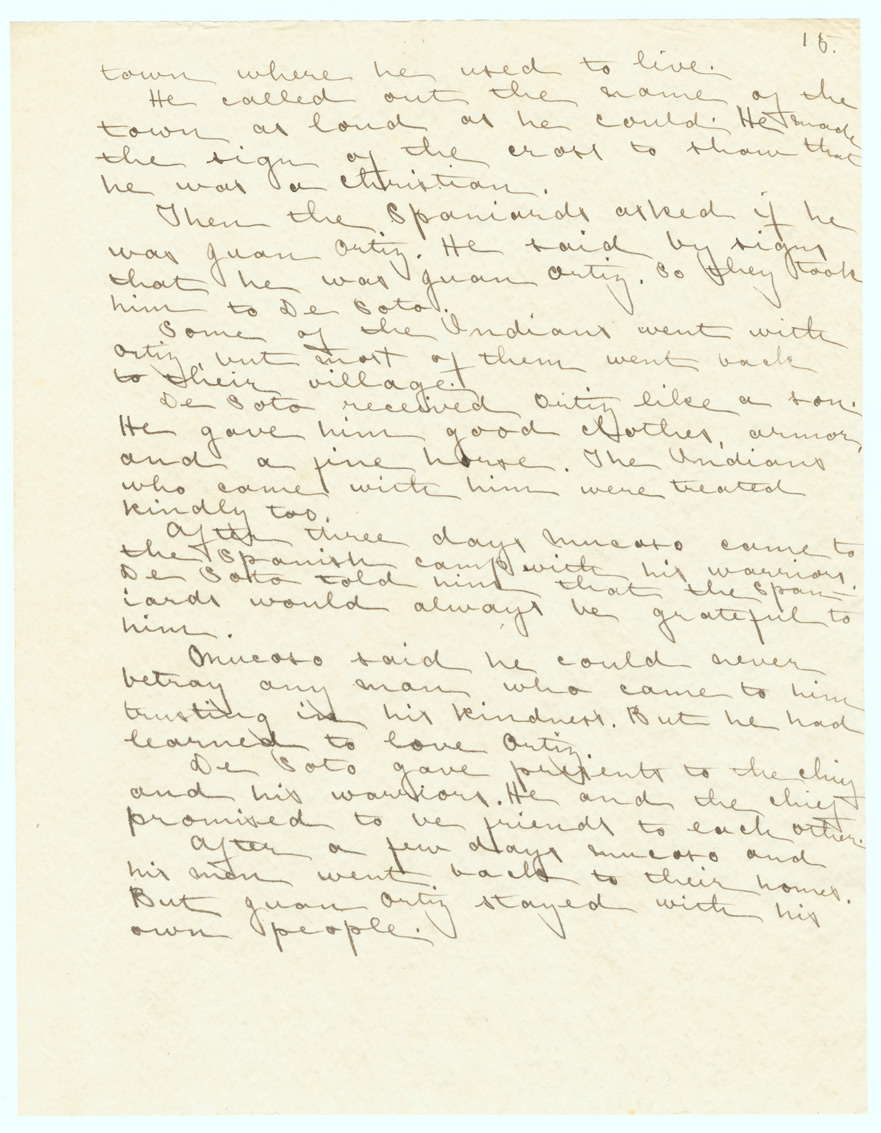 15.
town where he used to live.
He called out the name of the
town as loud as he could. He made
the sign of the cross to show that
he was a Christian.
Then the Spaniards asked if he
was Juan Ortiz. He said by signs
that he was Juan Ortiz. So they took
him to De Soto.
Some of the Indians went with
Ortiz, but most of them went back
to their village.
De Soto received Ortiz like a son.
He gave him good clothes, armor,
and a fine horse. The Indians
who came with him were treated
kindly too.
After three days Mucoso came to
the Spanish camp with his warriors.
De Soto told him that the Span-
iards would always be grateful to
him.
Mucoso said he could never
betray any man who came to him
trusting in his kindness. But he had
learned to love Ortiz.
De Soto gave presents to the chief
and his warriors. He and the chief
promised to be friends to each other.
After a few days Mucoso and
his men went back to their homes.
But Juan Ortiz stayed with his
own people.